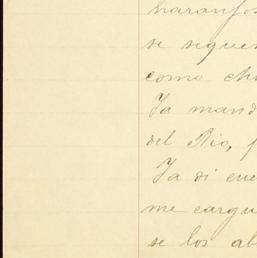 naranjos
se seque
como ch
Ya mand
del Rio, p
Ya di cue
me cargu
se los ab